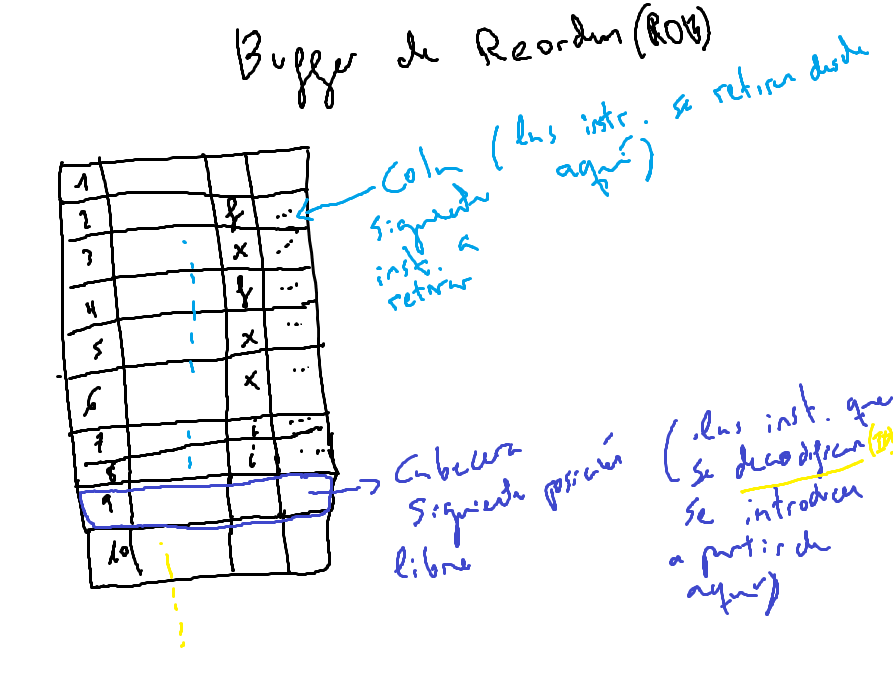 Buffer de Reorden (ROB)
1
2 f ...
3 x ...
4 f ...
5 x ...
6 x ...
7 i ...
8 i ...
9
10
Cola (las instr. se retiran desde
aquí)
siguiente
instr. a
retirar
Cabecera
siguiente posición
libre
(las inst. que
se decodifican
se introducen
a partir de
aquí)